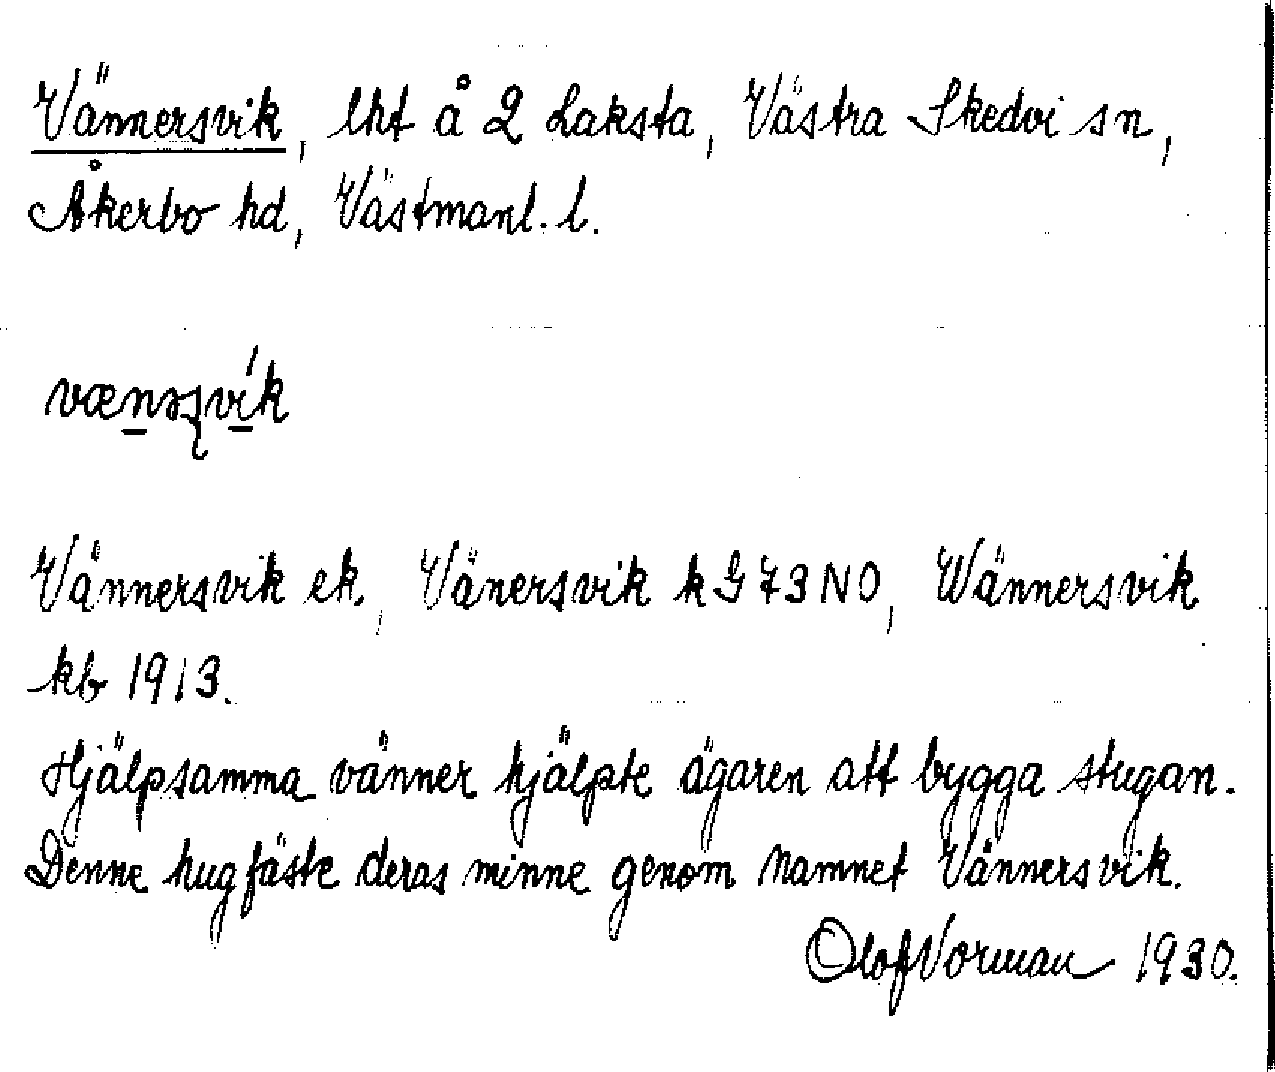 Vännersvik, lht å 2 Laksta, Västra Skedvi sn,
Åkerbo hd, Västmanl. l.
Vännersvik ek., Vänersvik k G 73 NO, Wännersvik
kb 1913.
Hjälpsamma vänner hjälpte ägaren att bygga stugan.
Denne hugfäste deras minne genom namnet Vännersvik.
Olof Vorman 1930.